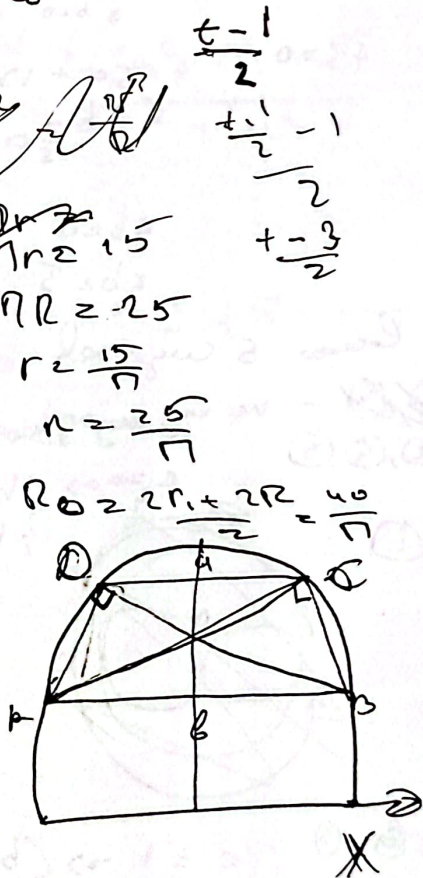 t-1
2
t-1
2
- 1
2
t-3
2
πr = 15
πR = 25
r = 15/π
R = 25/π
R₀ = (2r₁ + 2R)/2 = 40/π
D
a
C
A
b
B
X